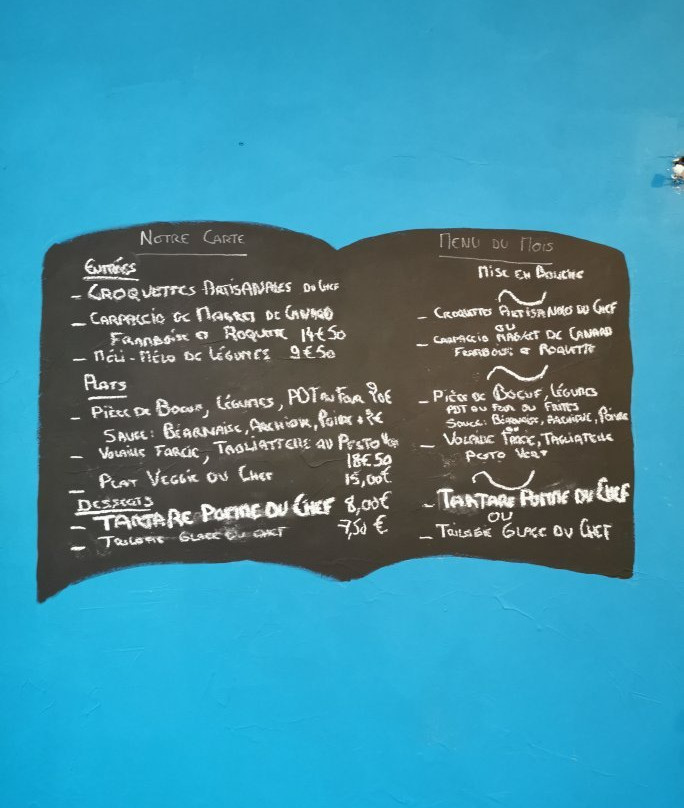 NOTRE CARTE
ENTRÉES
- CROQUETTES ARTISANALES DU CHEF
- CARPACCIO DE MAGRET DE CANARD
FRAMBOISE ET ROQUETTE 14€50
- MÉLI-MÉLO DE LÉGUMES 9€50
PLATS
- PIÈCE DE BOEUF, LÉGUMES, PDT AU FOUR
SAUCE: BÉARNAISE, ARCHIDUC, POIVRE
- VOLAILLE FARCIE, TAGLIATTELLE AU PESTO
18€50
- PLAT VEGGIE DU CHEF 15,00€
DESSERTS
- TARTARE POMME DU CHEF 8,00€
- TRILOGIE GLACE DU CHEF 7,50 €
MENU DU MOIS
MISE EN BOUCHE
- CROQUETTES ARTISANALES DU CHEF
OU
- CARPACCIO MAGRET DE CANARD
FRAMBOISE ET ROQUETTE
- PIÈCE DE BOEUF, LÉGUMES
PDT AU FOUR OU FRITES
SAUCE: BÉARNAISE, ARCHIDUC, POIVRE
OU
- VOLAILLE FARCIE, TAGLIATELLE
PESTO VERT
- TARTARE POMME DU CHEF
OU
- TRILOGIE GLACE DU CHEF